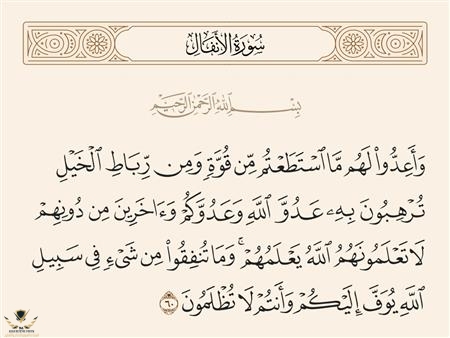 سُورَةُ الأَنفَالِ
بِسْمِ اللَّهِ الرَّحْمَٰنِ الرَّحِيمِ
وَأَعِدُّوا۟ لَهُم مَّا ٱسْتَطَعْتُم مِّن قُوَّةٍ وَمِن رِّبَاطِ ٱلْخَيْلِ
تُرْهِبُونَ بِهِۦ عَدُوَّ ٱللَّهِ وَعَدُوَّكُمْ وَءَاخَرِينَ مِن دُونِهِمْ
لَا تَعْلَمُونَهُمُ ٱللَّهُ يَعْلَمُهُمْ ۚ وَمَا تُنفِقُوا۟ مِن شَىْءٍ فِى سَبِيلِ
ٱللَّهِ يُوَفَّ إِلَيْكُمْ وَأَنتُمْ لَا تُظْلَمُونَ ٦٠